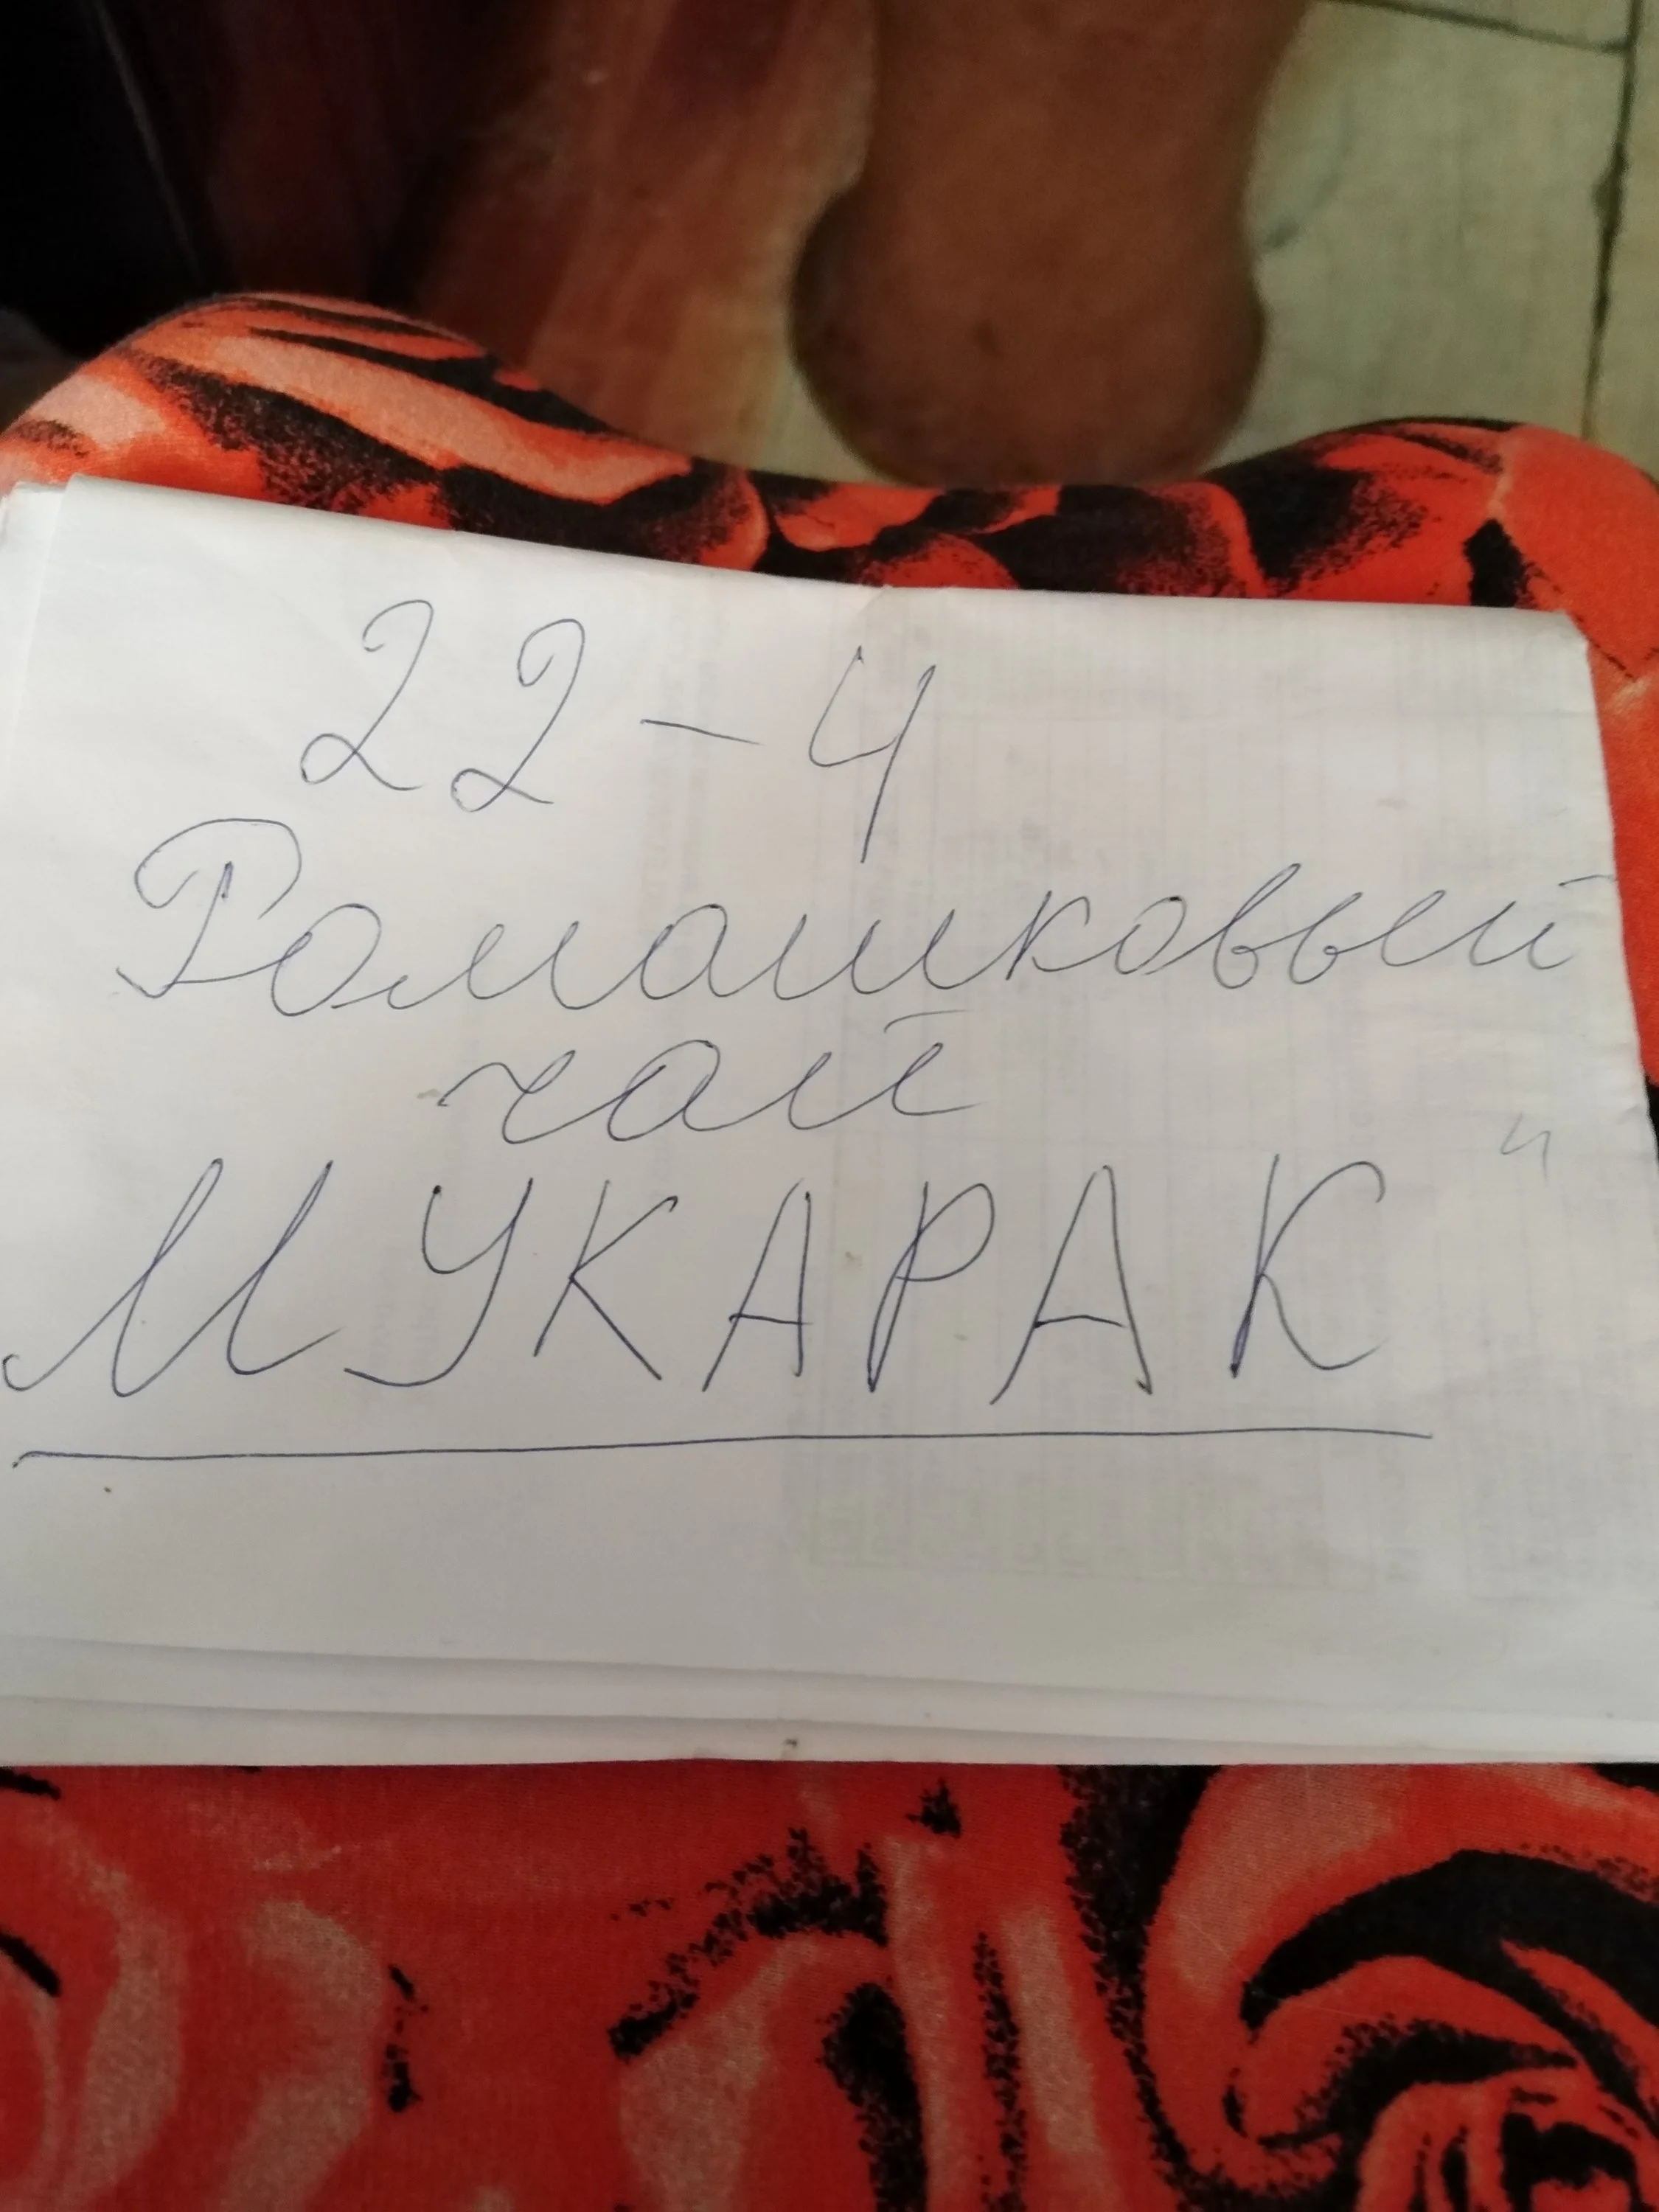 22-4
Ромашковый
чай
МУКАРАК